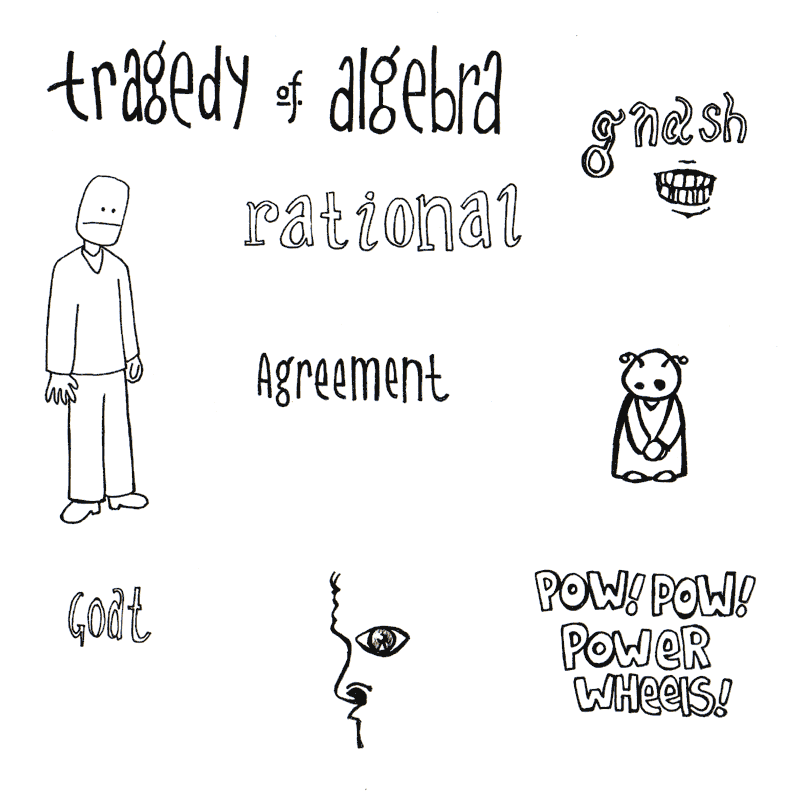 tragedy of algebra
gnash
rational
Agreement
Goat
POW! POW!
POWeR
WHeels!